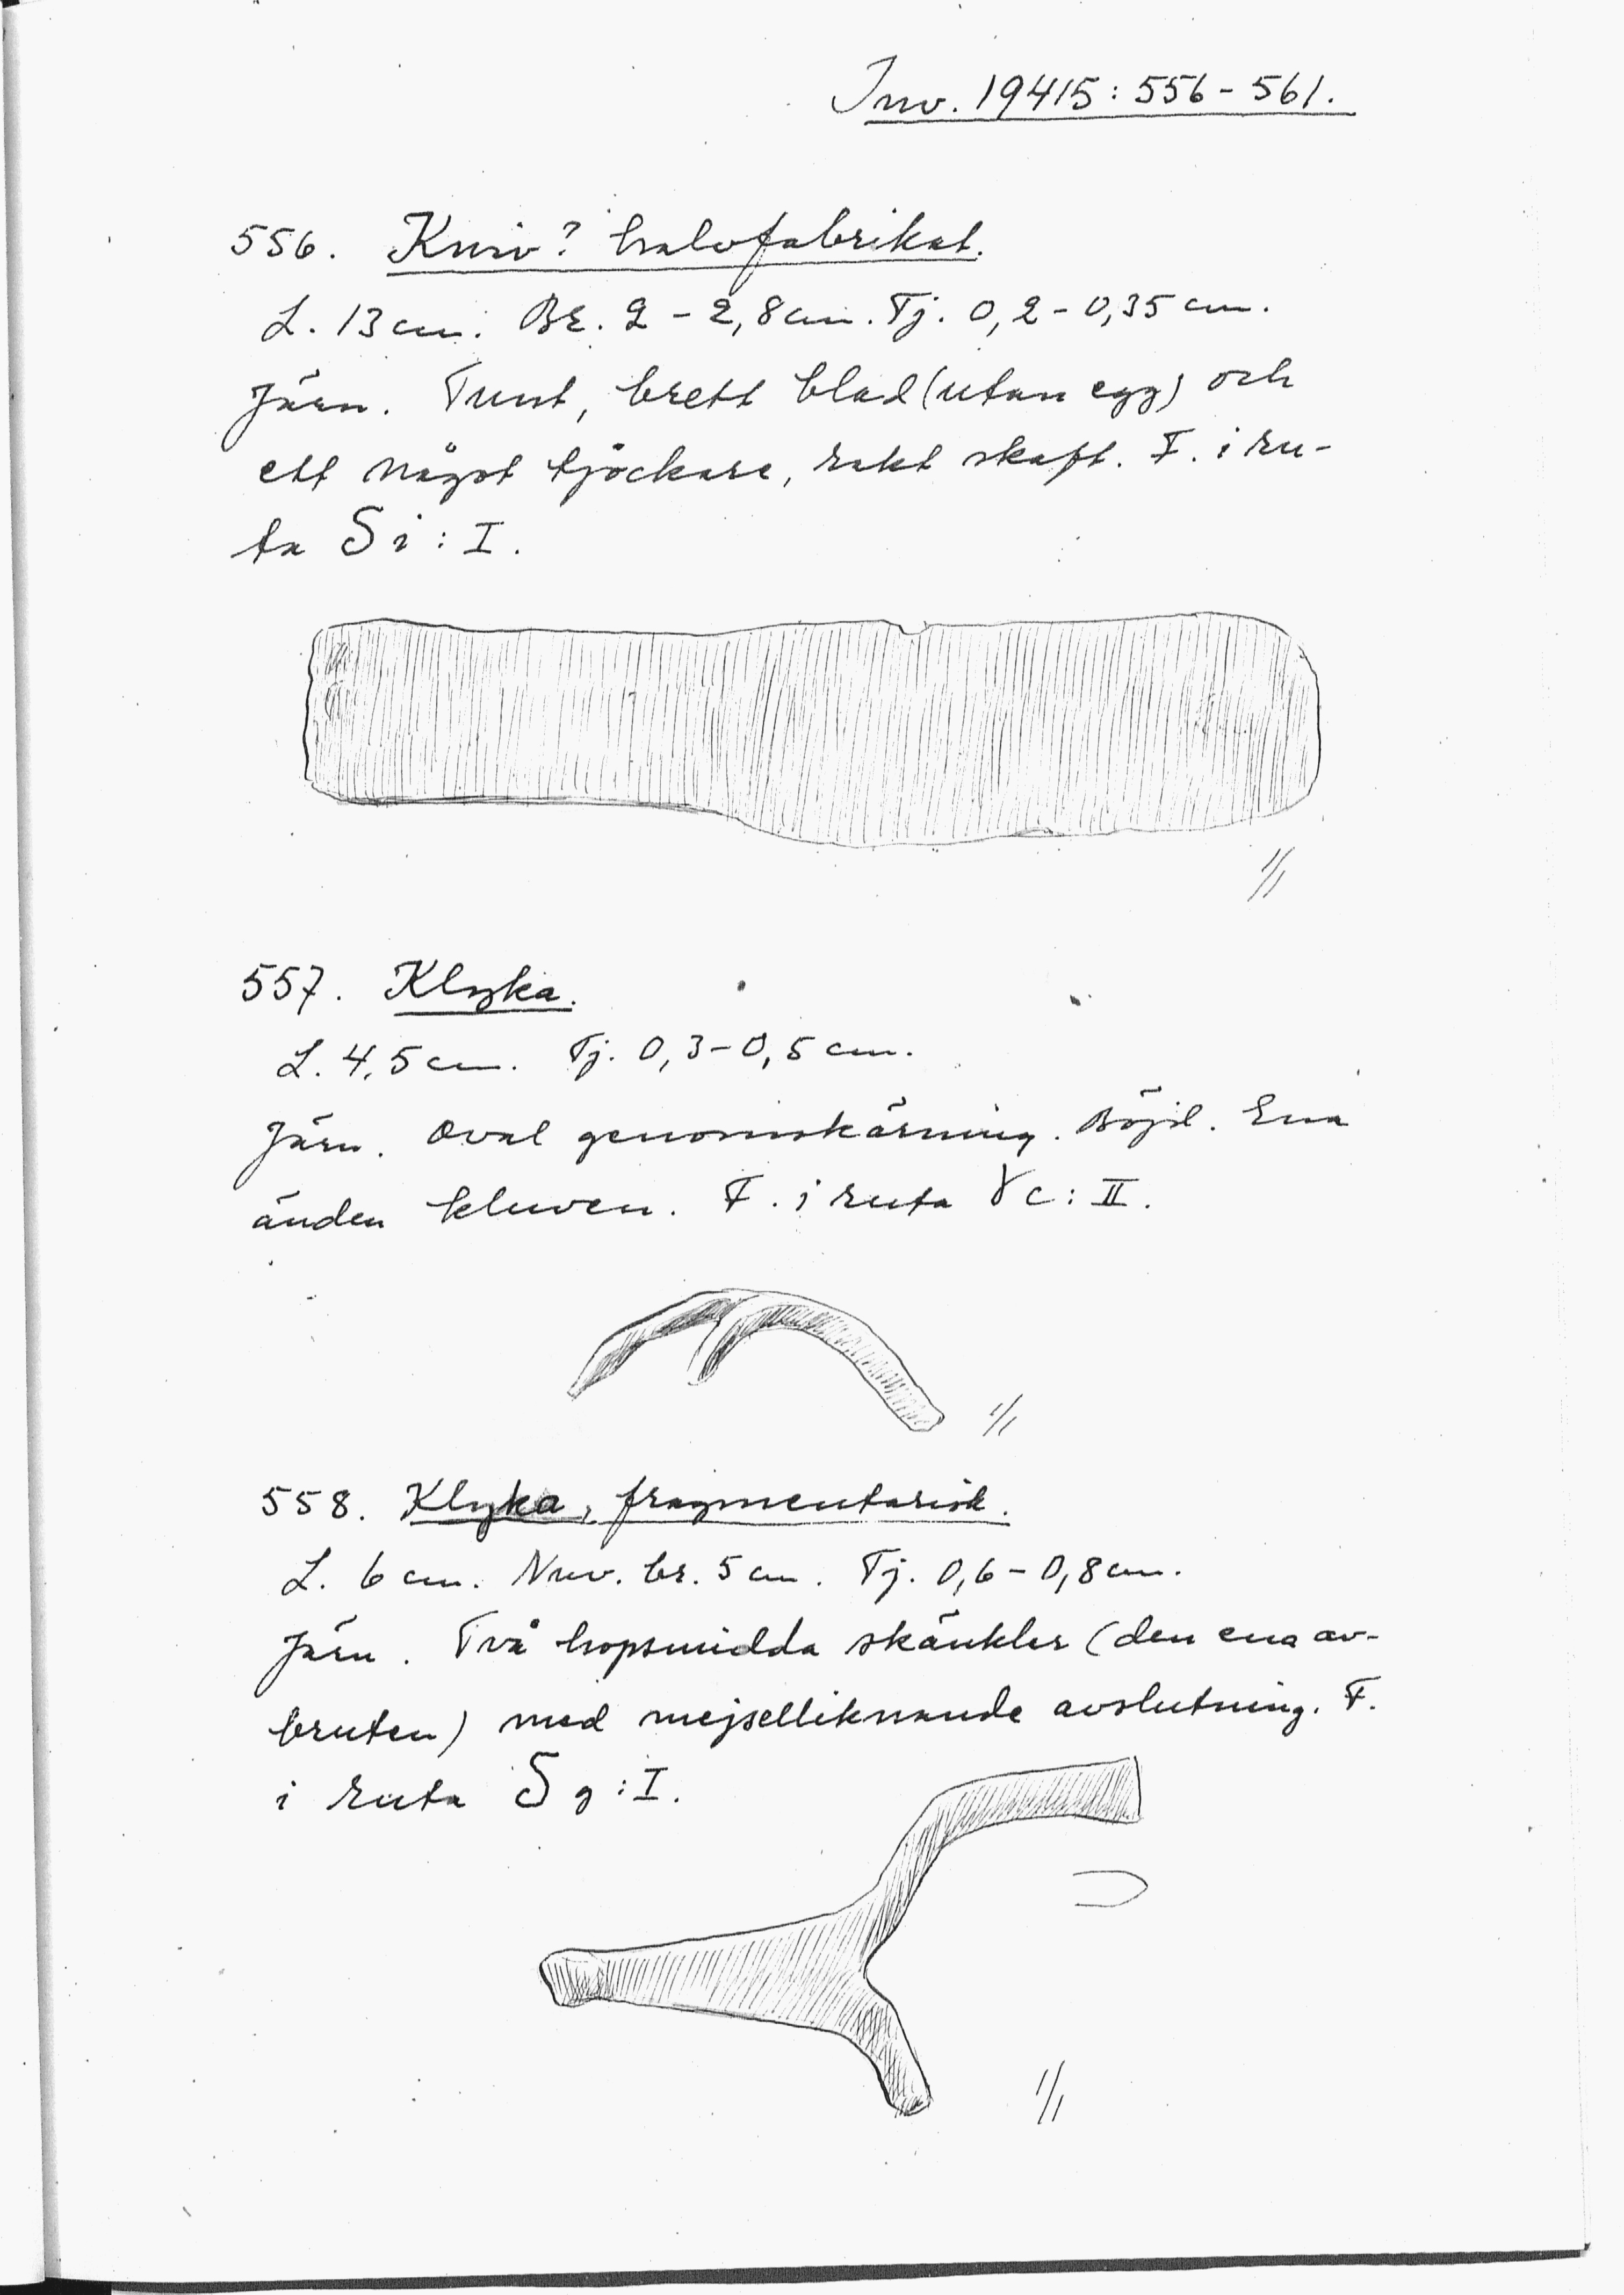 Inv. 19415:556-561.
556. Kniv? halvfabrikat.
L. 13 cm. Br. 2-2,8 cm. Tj. 0,2-0,35 cm.
Järn. Tunt, brett blad (utan egg) och
ett något tjöckare, rakt skaft. F. i ru-
ta Si:I.
1/1
557. Klyka.
L. 4,5 cm. Tj. 0,3-0,5 cm.
Järn. Oval genomskärning. Böjd. Ena
änden kluven. F. i ruta γc:II.
1/1
558. Klyka, fragmentarisk.
L. 6 cm. Nuv. br. 5 cm. Tj. 0,6-0,8 cm.
Järn. Två hopsmidda skänkler (den ena av-
bruten) med mejselliknande avslutning. F.
i ruta Sg:I.
1/1